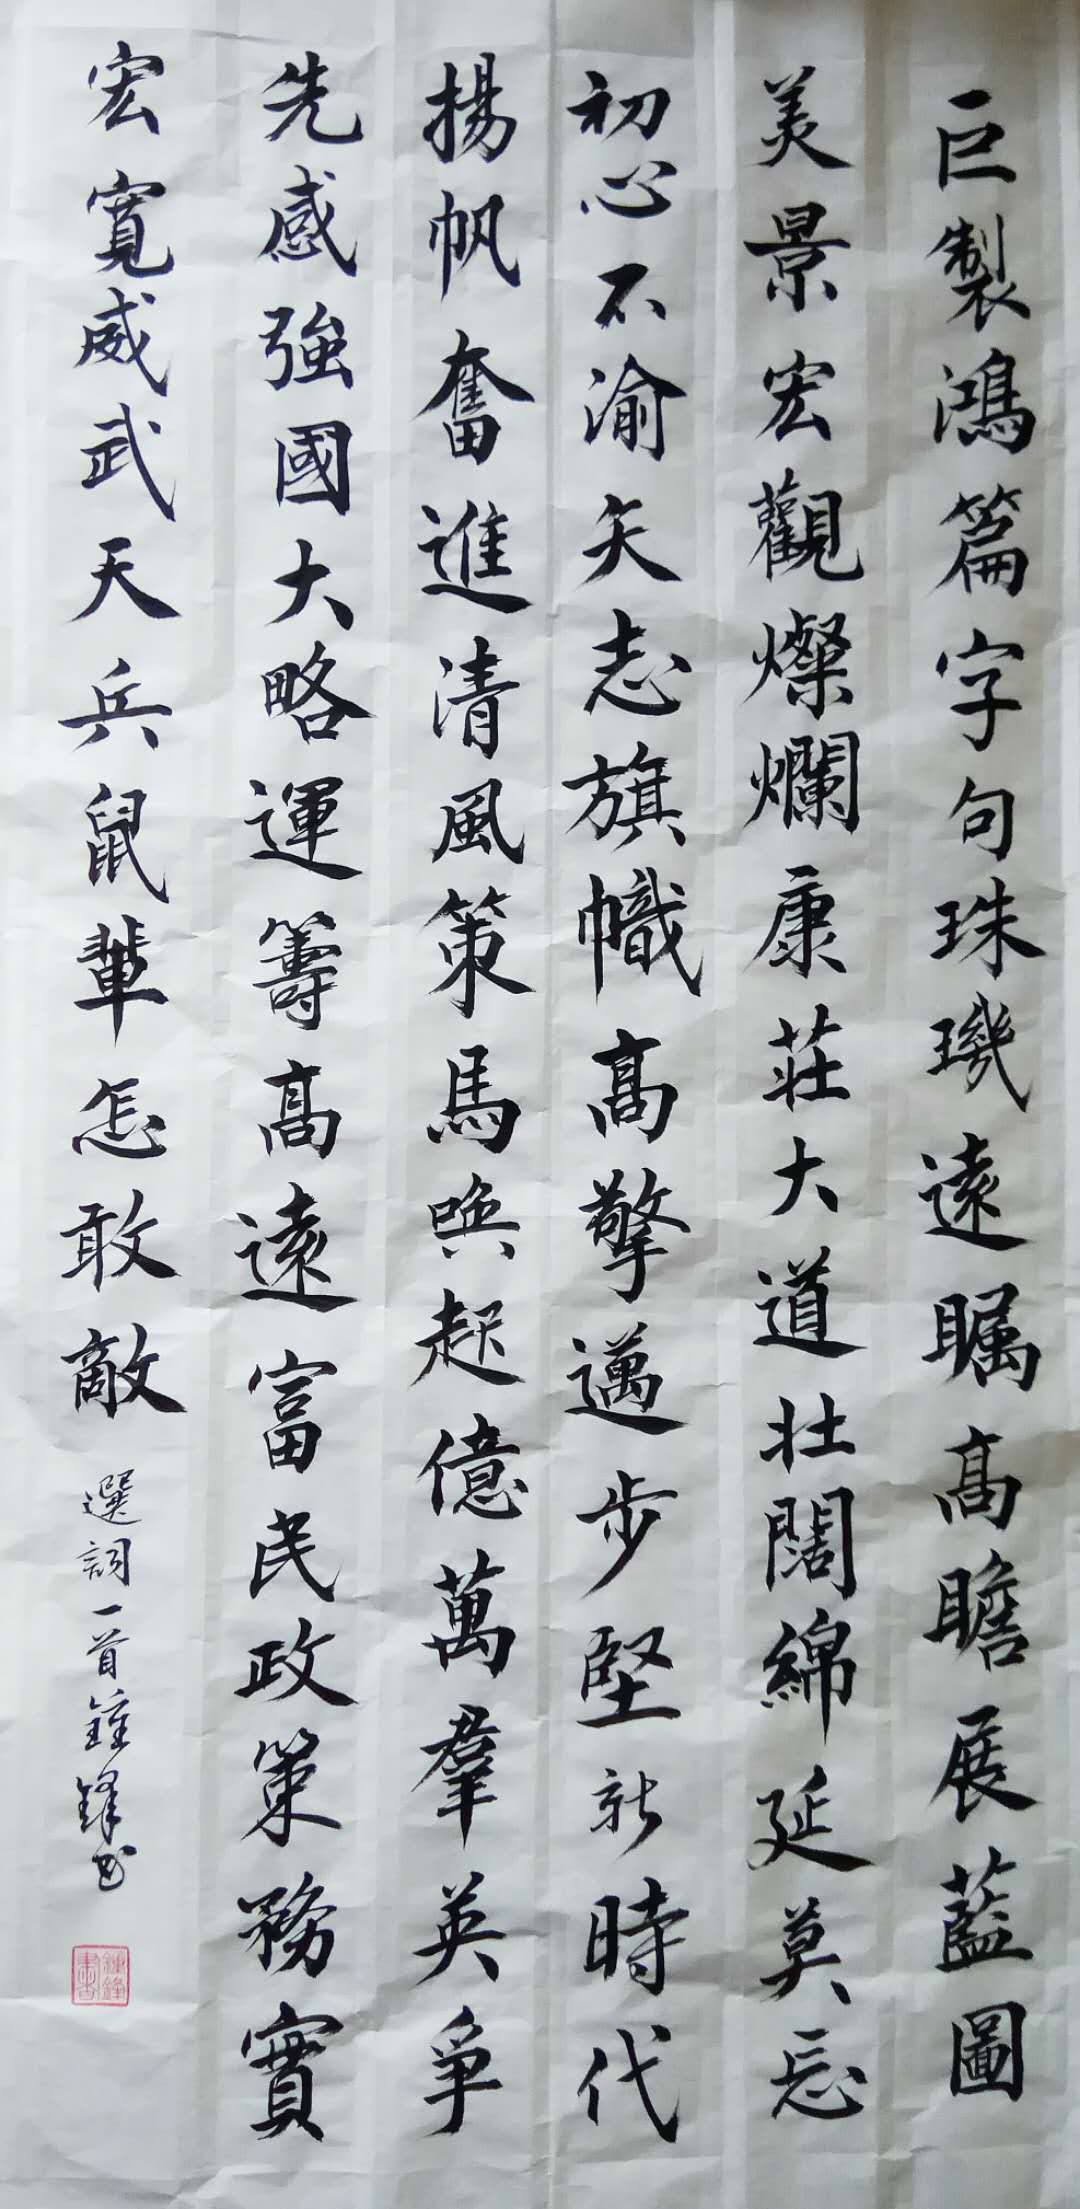 巨製鴻篇字句珠璣遠矚高瞻展藍圖
美景宏觀燦爛康莊大道壯闊綿延莫忘
初心不渝矢志旗幟高擎邁步堅新時代
揚帆奮進清風策馬喚起億萬羣英爭
先感強國大略運籌高遠富民政策務實
宏寬威武天兵鼠輩怎敢敵
選詞一首鍾鋒書
鍾鋒書